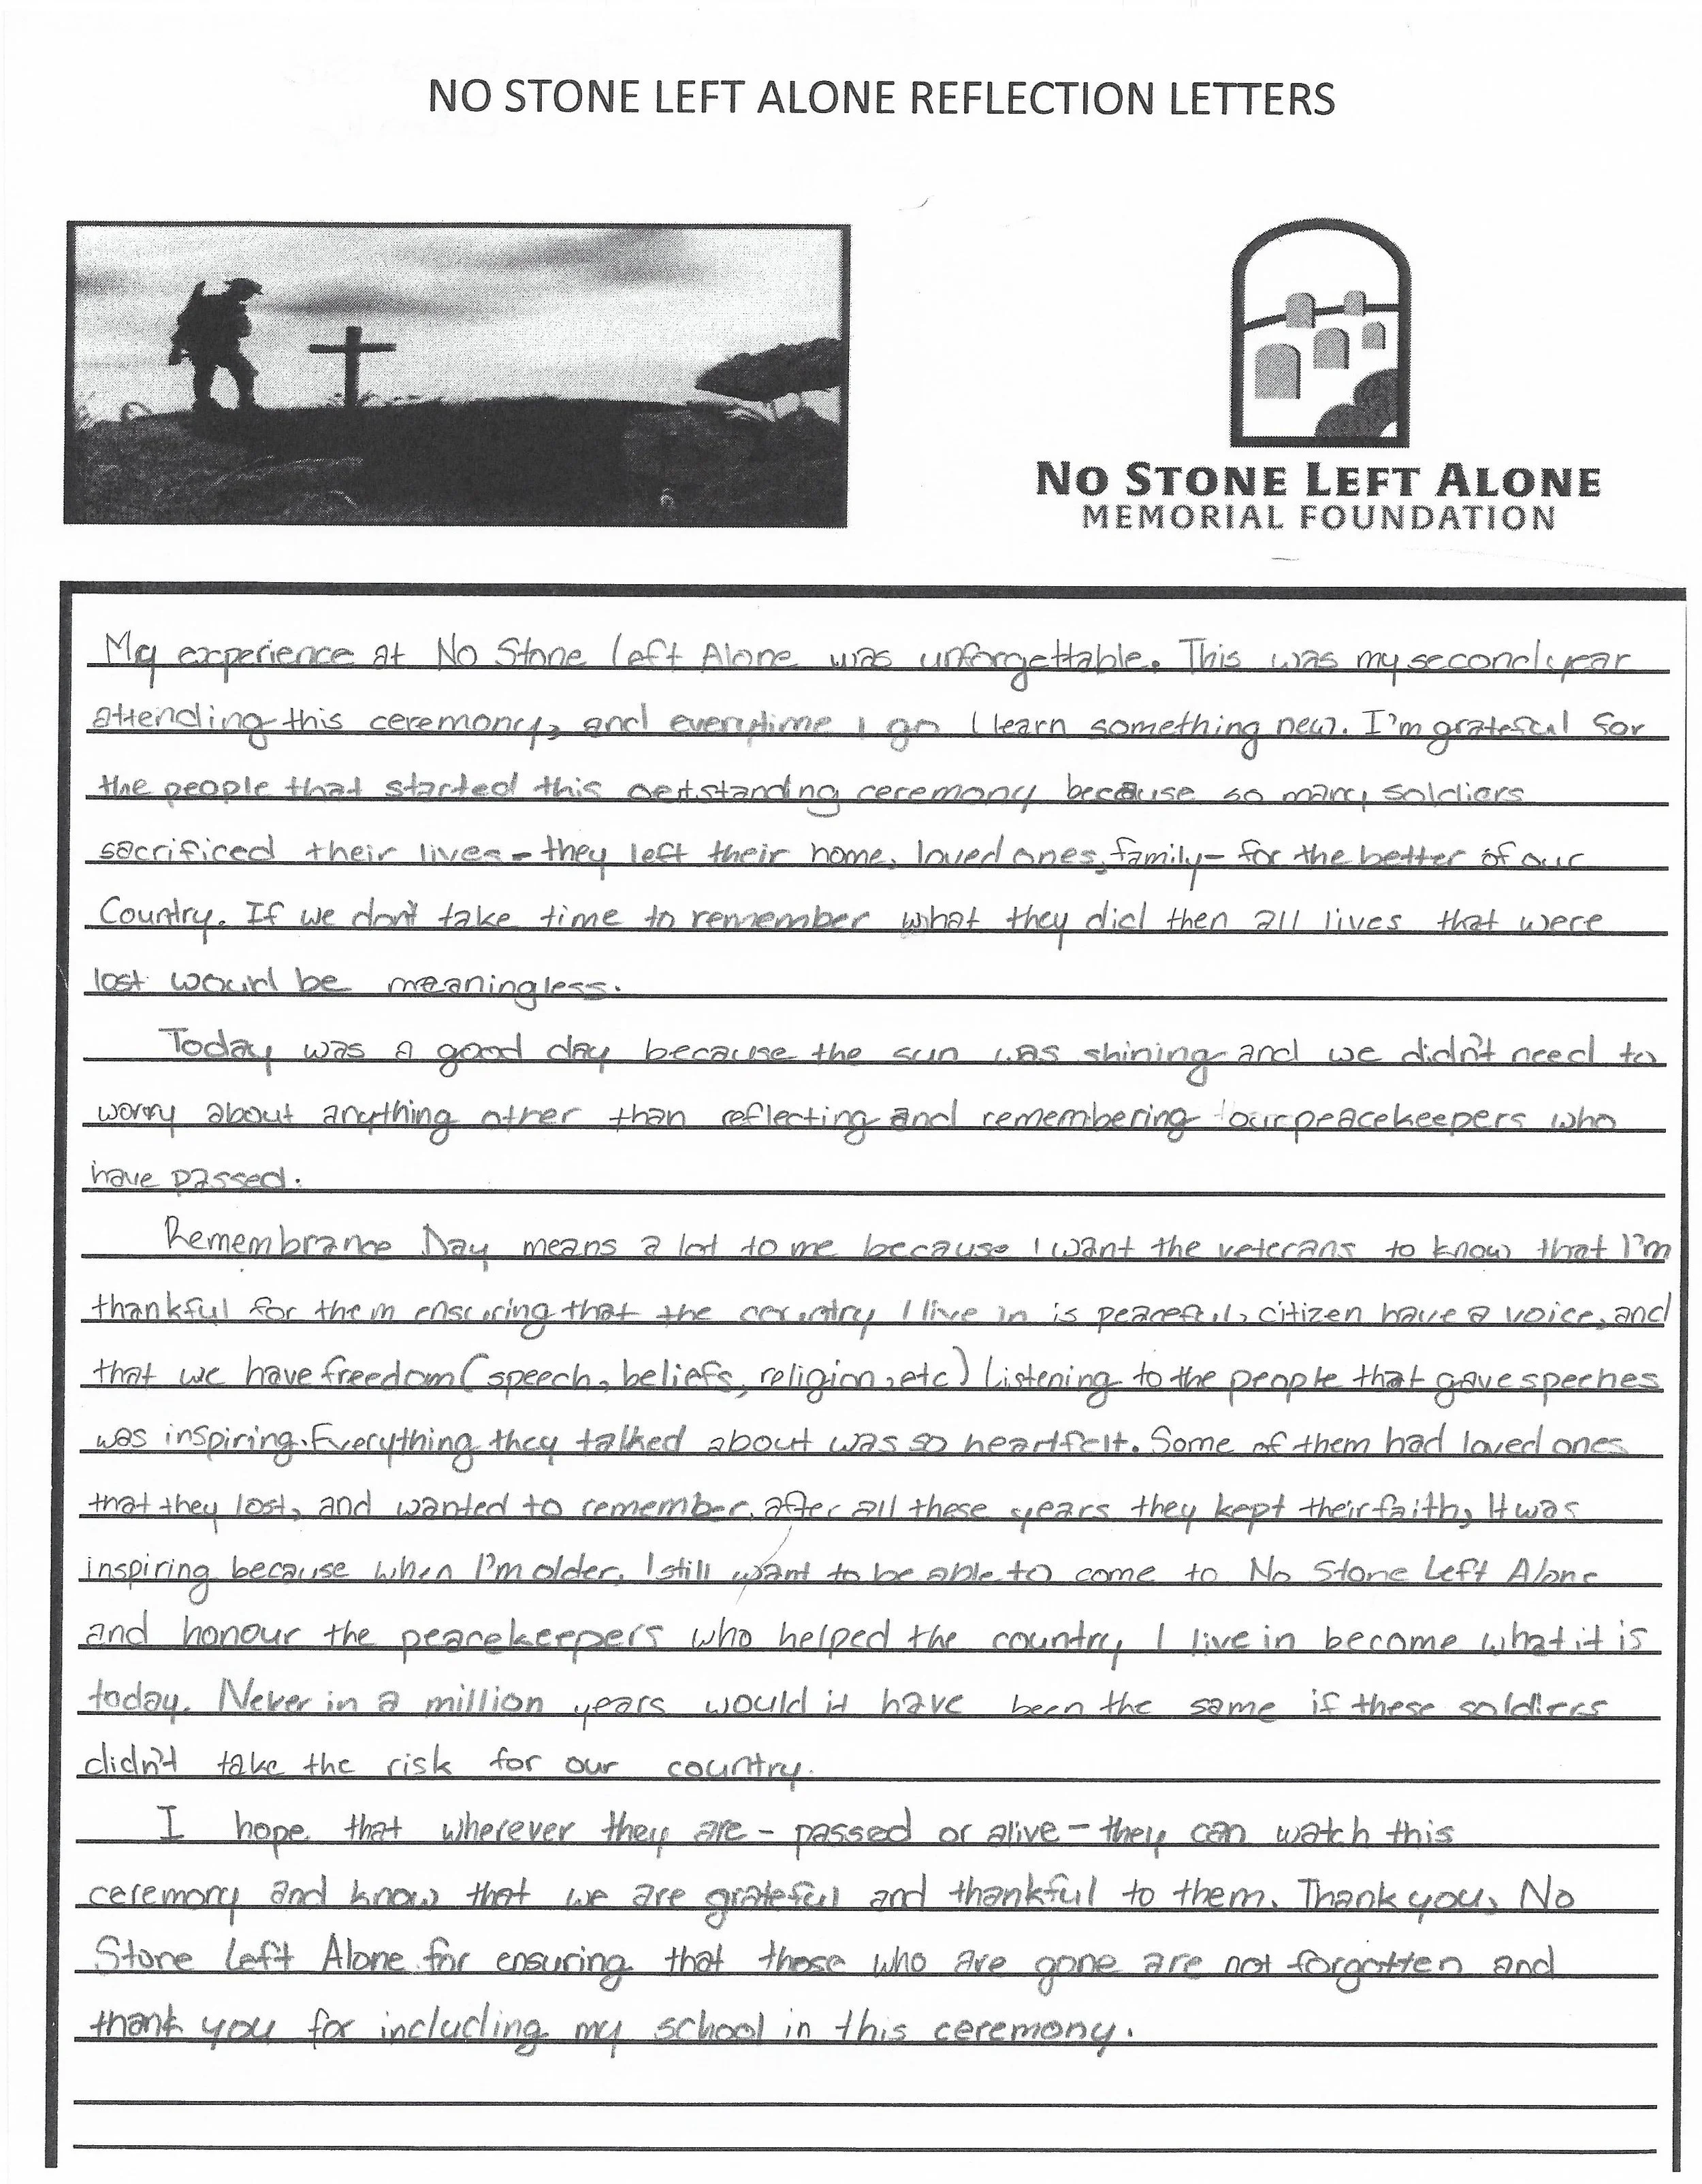 NO STONE LEFT ALONE REFLECTION LETTERS
NO STONE LEFT ALONE
MEMORIAL FOUNDATION
My experience at No Stone Left Alone was unforgettable. This was my second year
attending this ceremony, and everytime I go I learn something new. I'm grateful for
the people that started this oertstanding ceremony because so many soldiers
sacrificed their lives - they left their home, loved ones, family - for the better of our
Country. If we don't take time to remember what they did then all lives that were
lost would be meaningless.
Today was a good day because the sun was shining and we didn't need to
worry about anything other than reflecting and remembering our peacekeepers who
have passed.
Remembrance Day means a lot to me because I want the veterans to know that I'm
thankful for them ensuring that the country I live in is peaceful, citizen have a voice, and
that we have freedom (speech, beliefs, religion, etc) Listening to the people that gave speches
was inspiring. Everything they talked about was so heartfelt. Some of them had loved ones
that they lost, and wanted to remember. after all these years they kept their faith, It was
inspiring because when I'm older, I still want to be able to come to No Stone Left Alone
and honour the peacekeepers who helped the country I live in become what it is
today. Never in a million years would it have been the same if these soldiers
didn't take the risk for our country.
I hope that wherever they are - passed or alive - they can watch this
ceremony and know that we are grateful and thankful to them. Thank you, No
Stone Left Alone for ensuring that those who are gone are not forgotten and
thank you for including my school in this ceremony.